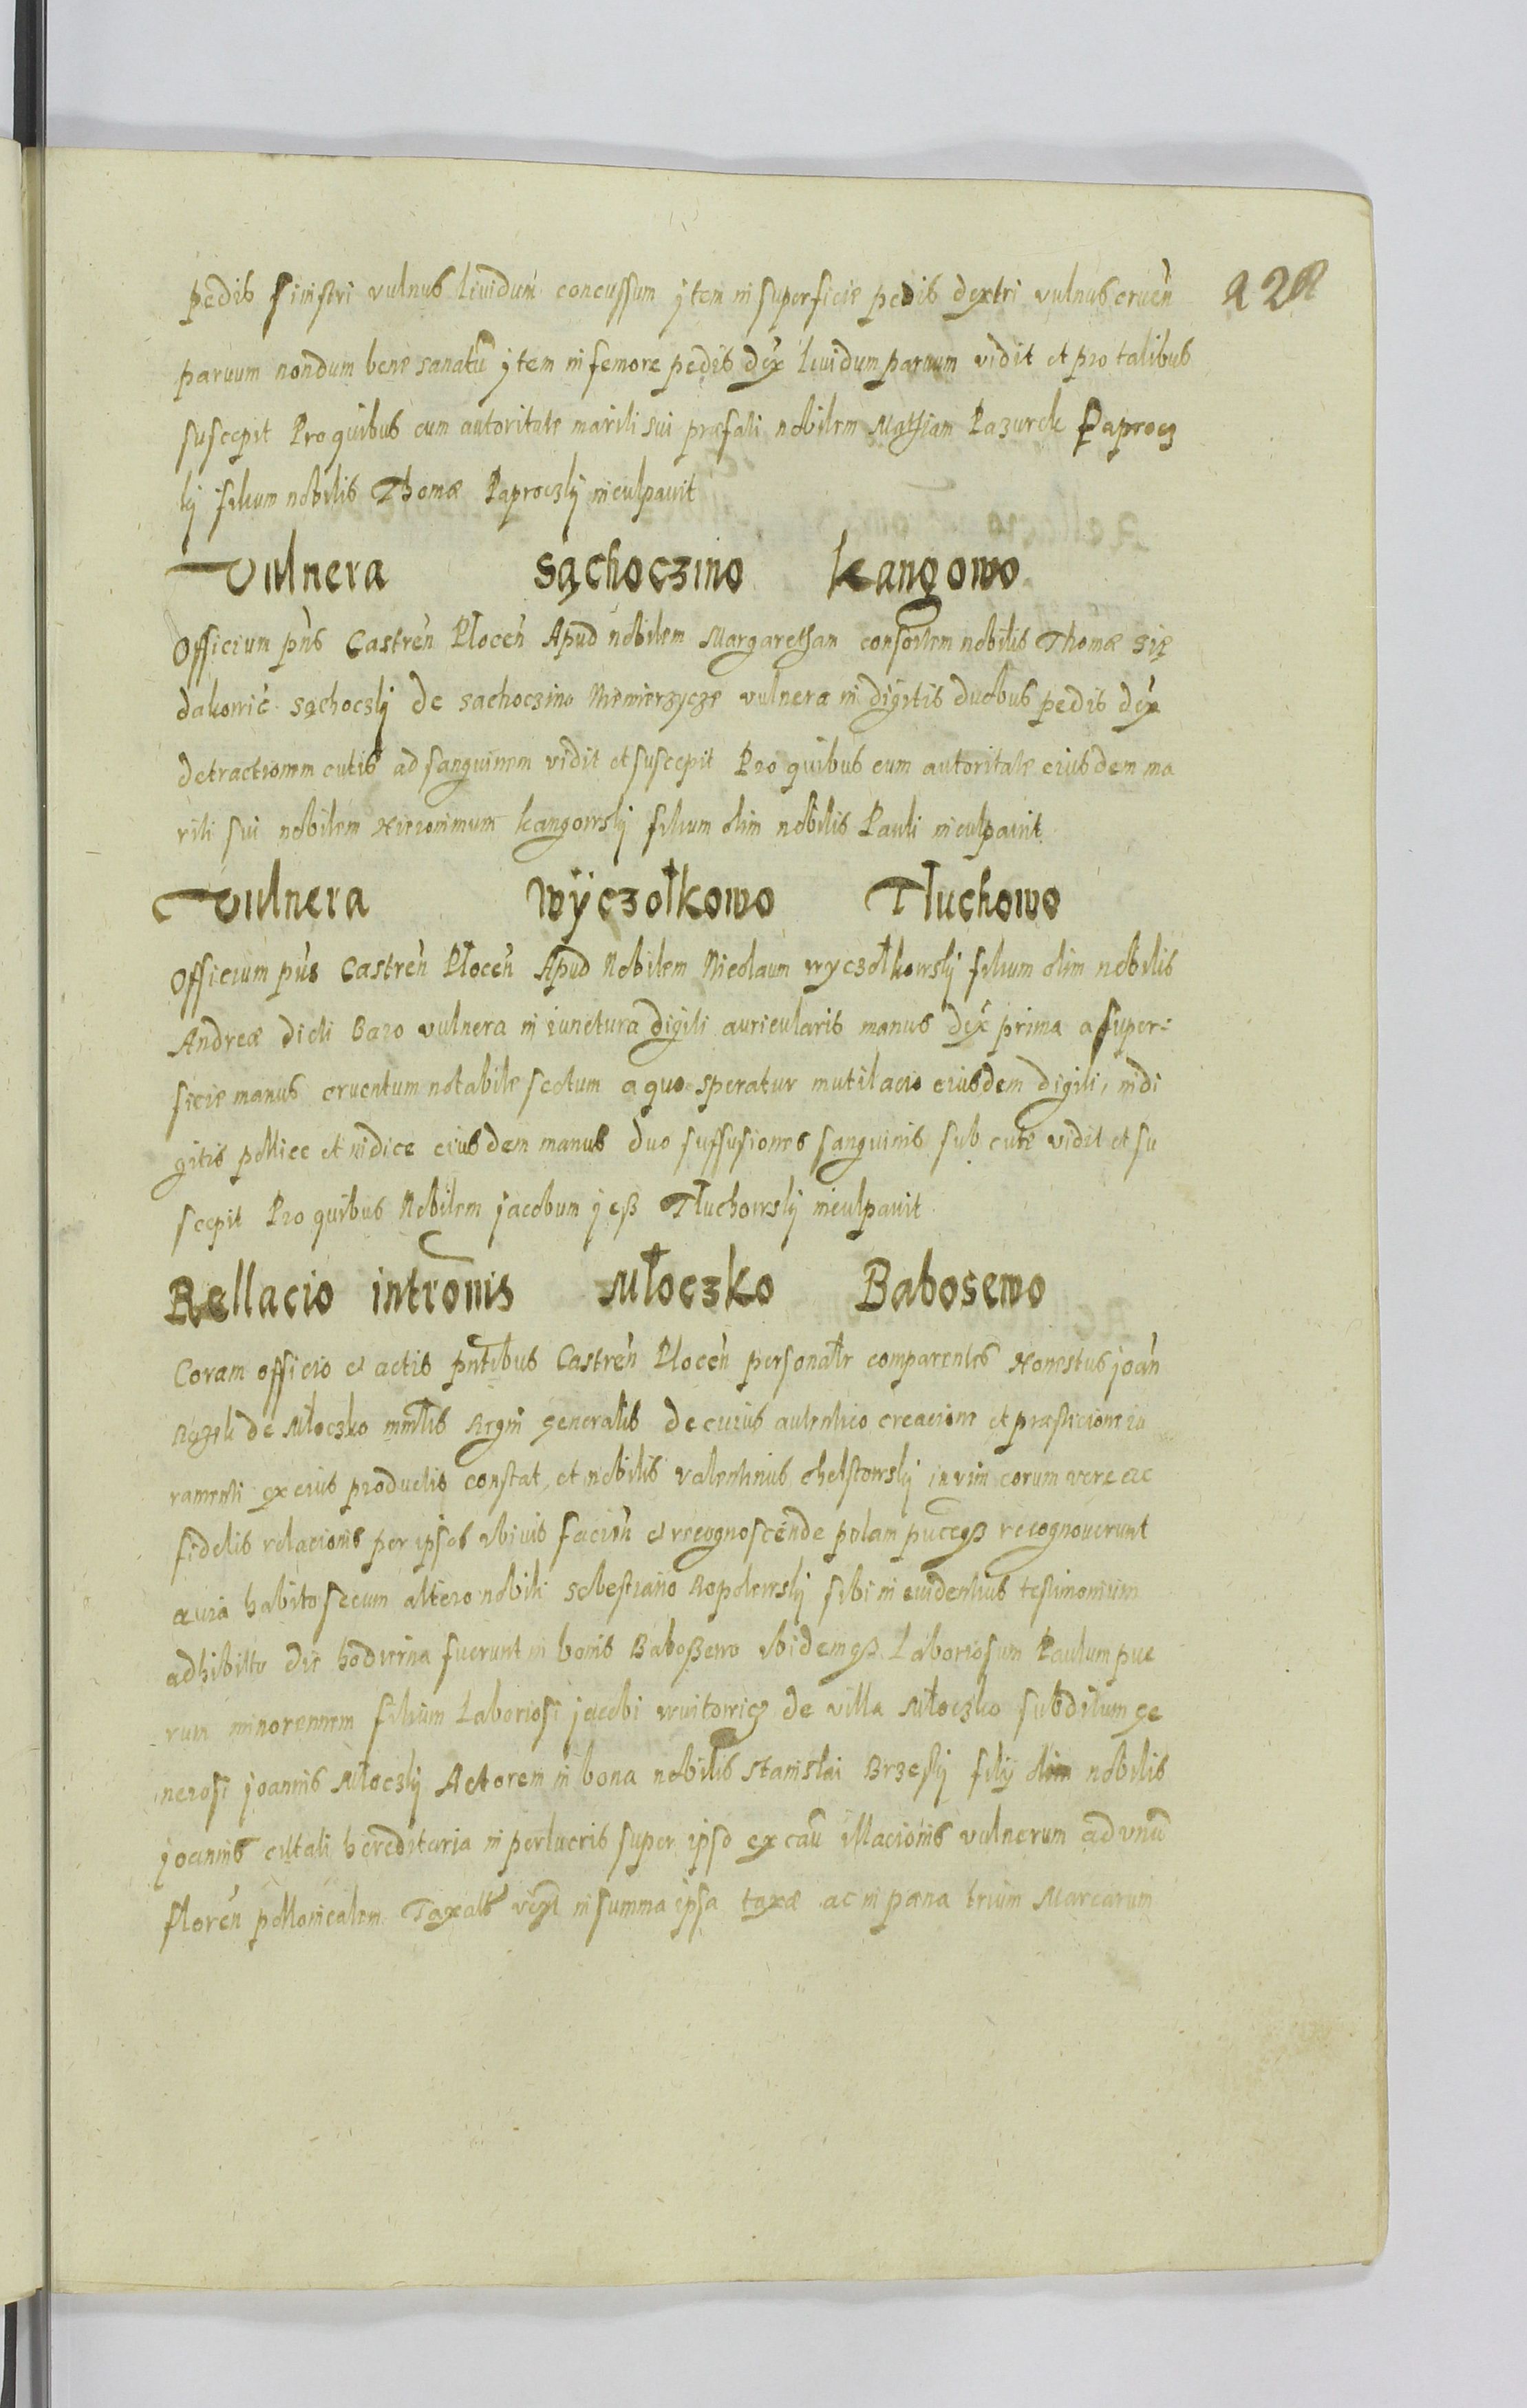 pedis sinistri vulnus liuidum concussum jtem in superficie pedis dextri vulnus cruen̄
paruum nondum bene sanatū jtem in femore pedis dex̄ liuidum paruum vidit et pro talibus
suscepit Pro quibus cum autoritate mariti sui præfati nobilem Mathiam Pazurek Paprocz
kj filium nobilis Thomæ Paproczkj inculpauit
Vulnera Sąchoczino Kangowo
Officium pn̄s Castren̄ Płocen̄ Apud nobilem Margaretham consortem nobilis Thomæ Się
dakowic Sąchoczkj de Sachoczino Niemierzycze vulnera in digitis duobus pedis dex̄
detractionem cutis ad sanguinem vidit et suscepit Pro quibus cum autoritate eiusdem ma
riti sui nobilem Hieronimum Kangowskj filium olim nobilis Pauli inculpauit
Vulnera Wÿczołkowo Tłuchowo
Officium pn̄s Castren̄ Płocen̄ Apud Nobilem Nicolaum Wyczołkowskj filium olim nobilis
Andreæ dicti Baro vulnera in iunctura digiti auricularis manus dex̄ prima a super:
ficie manus cruentum notabile sectum a quo speratur mutilacio eiusdem digiti, in di
gitis pollice et indice eiusdem manus duo suffusiones sanguinis sub cute vidit et su
scepit Pro quibus Nobilem jacobum jeß Tłuchowskj inculpauit
Rellacio introm̄is Młoczko Babosewo
Coram officio et actis pn̄tibus Castren̄ Płocen̄ personal̄r comparentes Honestus joan̄
de Młoczko min̄lis Regni generalis de cuius autentico creacione et præsticione iu
ramenti ex eius productis constat, et nobilis Valentinus Chelstowskj in vim eorum veræ ac
fidelis relacionis per ipsos vbiuis facien̄ et recognoscende palam recognouerunt
quia habito secum altero nobili Sebestiano Ropelewskj sibi in euidentius testimonium
adhibitto die hodierna fuerunt in bonis Baboßewo ibidemqß Laboriosum Paulum pue
rum minorennem filium Laboriosi jacobi Wuitowicz de villa Młoczko subditum ge
nerosi joannis Młoczkj Actorem in bona nobilis Stanislai Brzeskj filij olim nobilis
joannis hereditaria in perlucris super ipso ex cau̅ illacionis vulnerum ad vnū
floren̄ pollonicalem in summa ipsa taxæ ac in pœna trium Marcarum